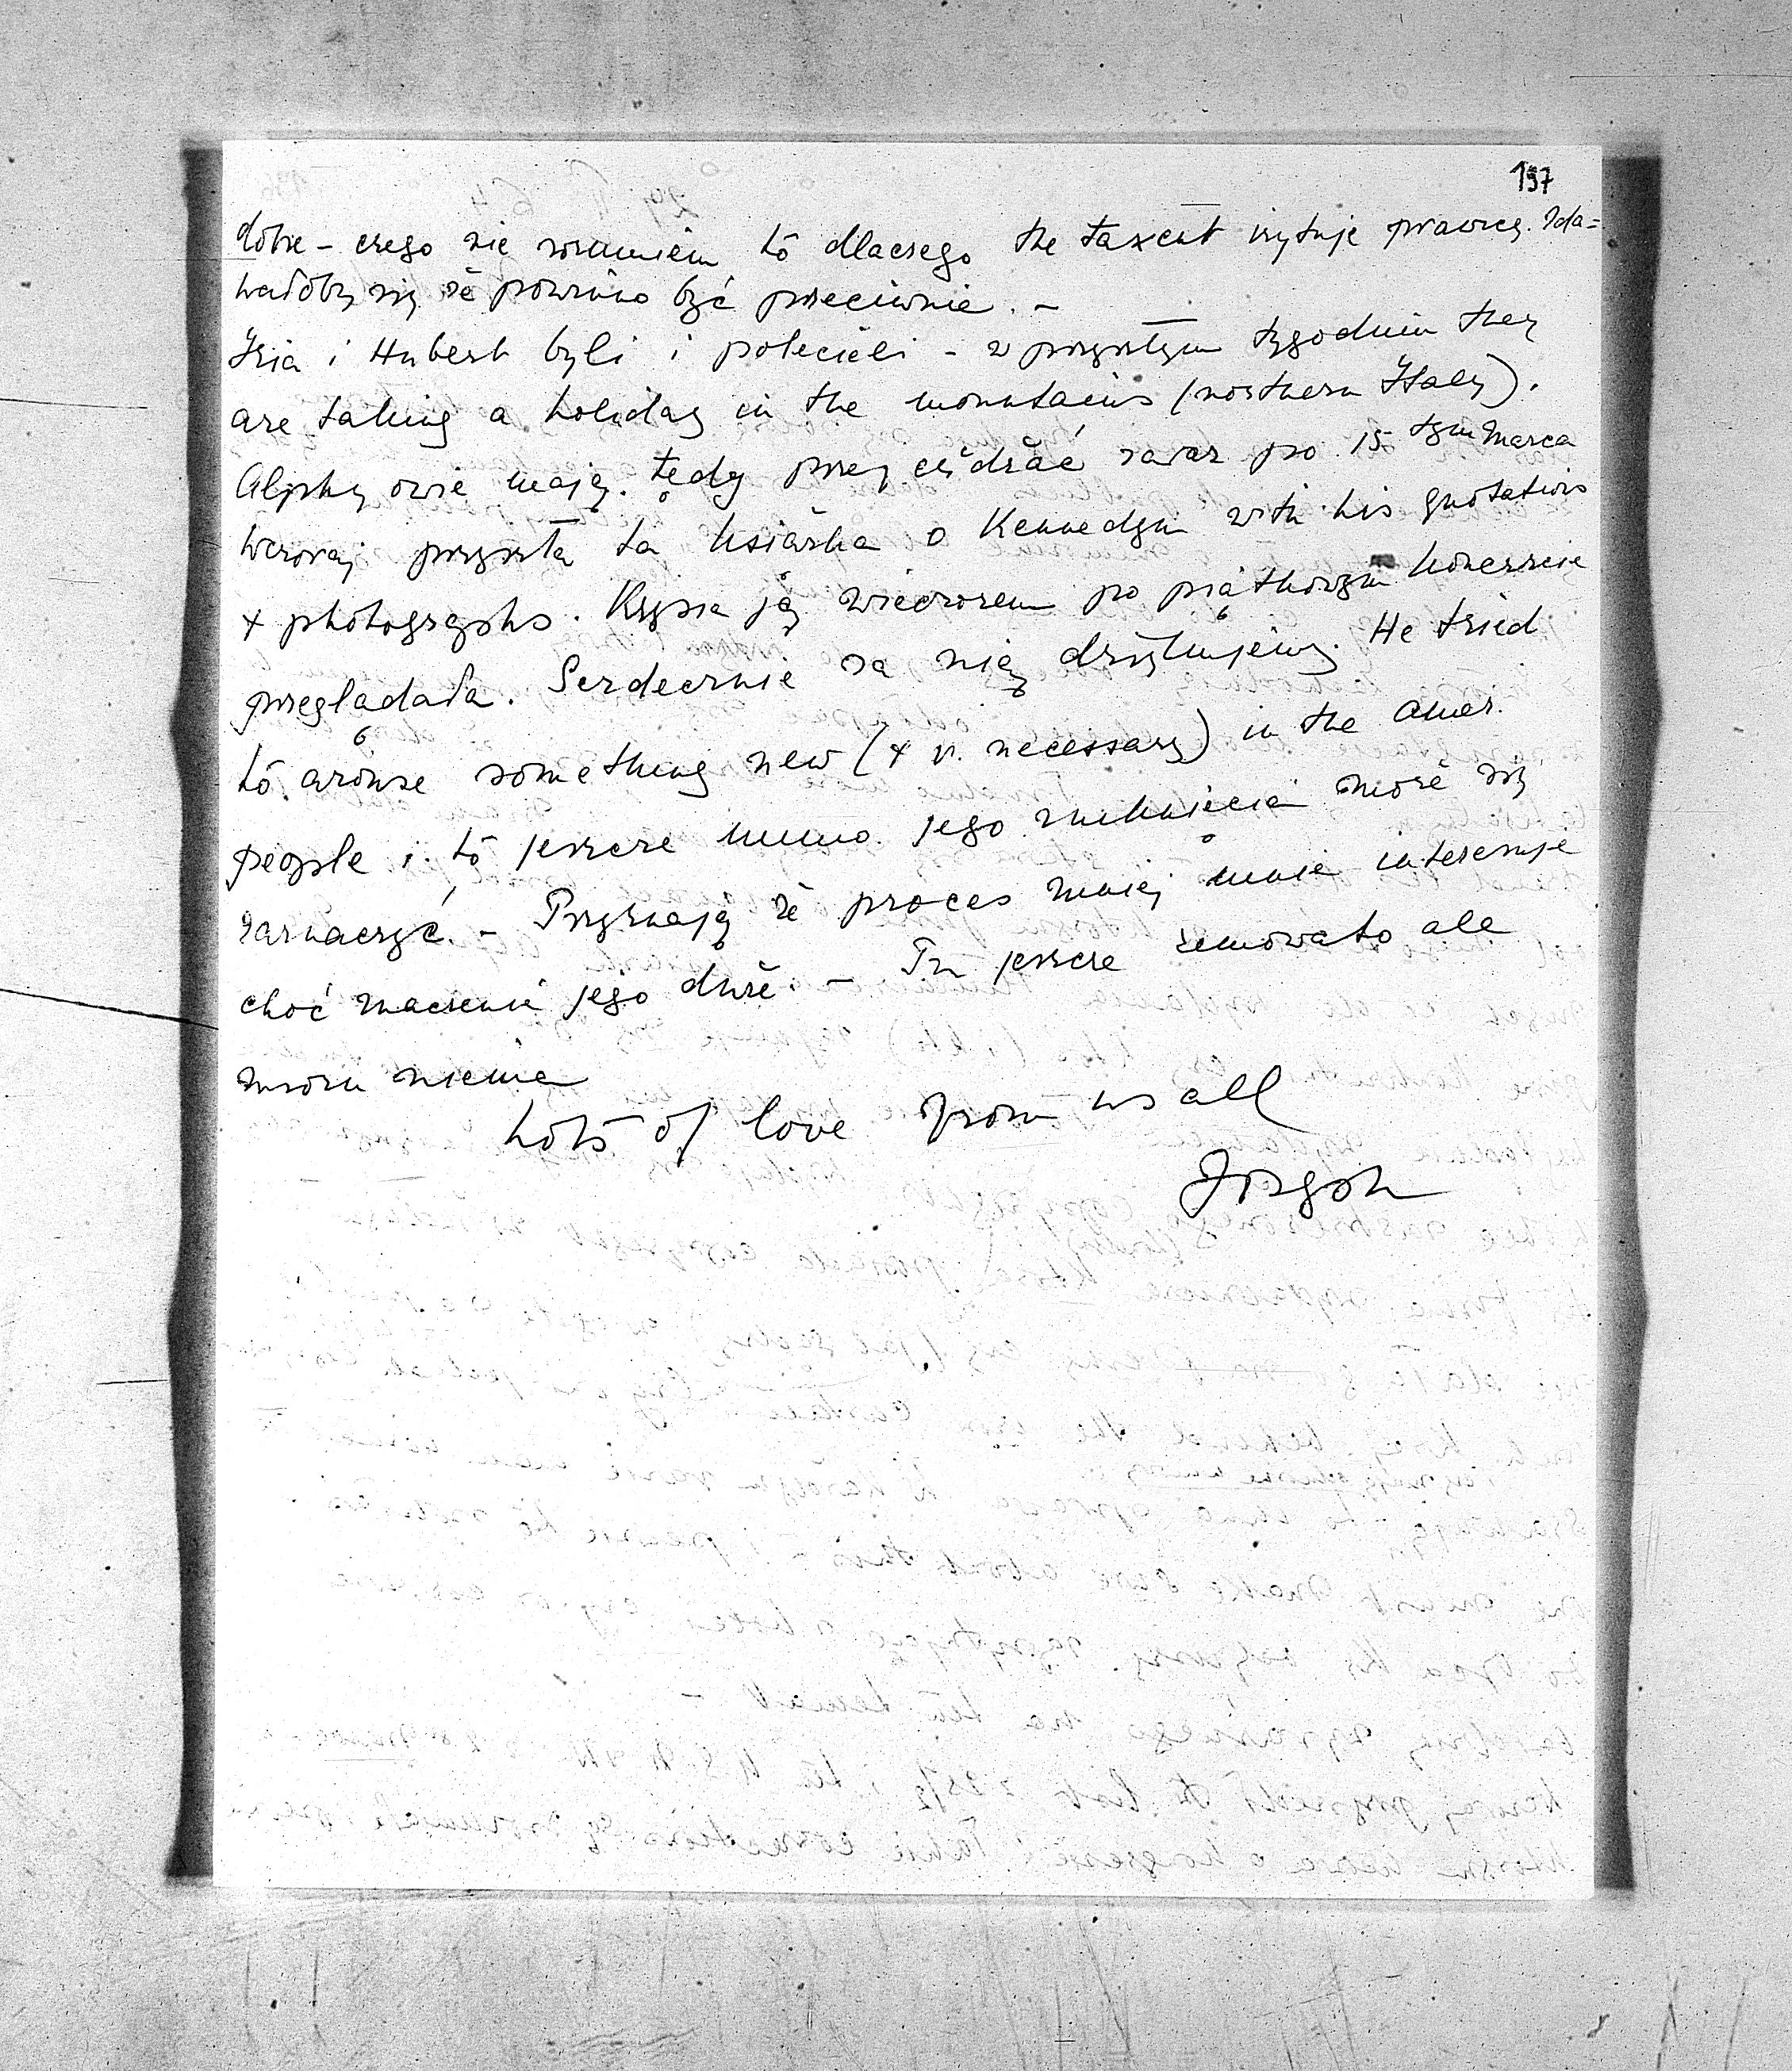 197
dobre – czego nie rozumiem to dlaczego the taxcut irytuje prawicę. Zda=
wałoby się że powinno być przeciwnie. –
Izia i Hubert byli i polecieli – w przyszłym tygodniu they
are taking a holiday in the mountains (northern Italy).
Alpky owe mają tędy przejeżdżać zaraz po 15 tym Marca
Wczoraj przyszła ta książka o Kennedym with his quotations
+ photographs. Krysia ją wieczorem po piątkowym koncercie
przeglądała. Serdecznie za nią dziękujemy. He tried
to arouse something new (+ v. necessary) in the Amer.
people i to jeszcze mimo jego zniknięcia może się
zaznaczyć. – Przyznaję że proces mniej mnie interesuje
choć znaczenie jego duże. – Tu jeszcze zimowato ale
mrozu niema
Lots of love from us all